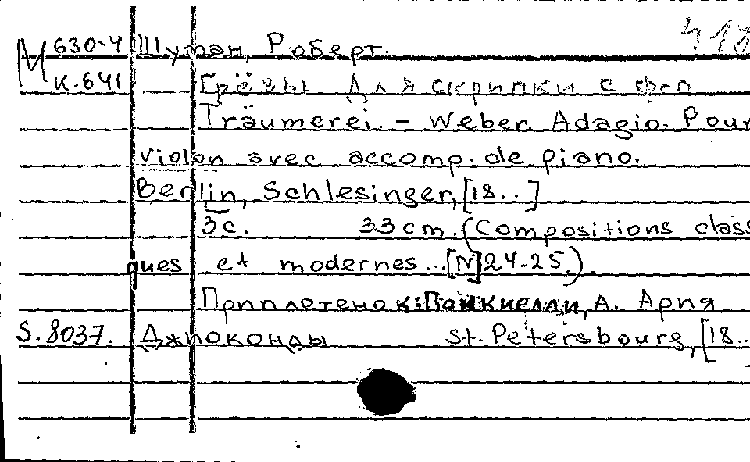 М 630-4 Шуман, Роберт. 418
К.641 Грёзы Для скрипки с ф-п
Träumerei. – Weber. Adagio. Pour
violon avec accomp. de piano.
Berlin, Schlesinger, [18..]
3с. 33 cm. (Compositions class
ques et modernes...[N] 24-25.).
Приплетено к: Понкиелли, А. Ария
S.8037. Джиоконды St. Petersbourg, [18..